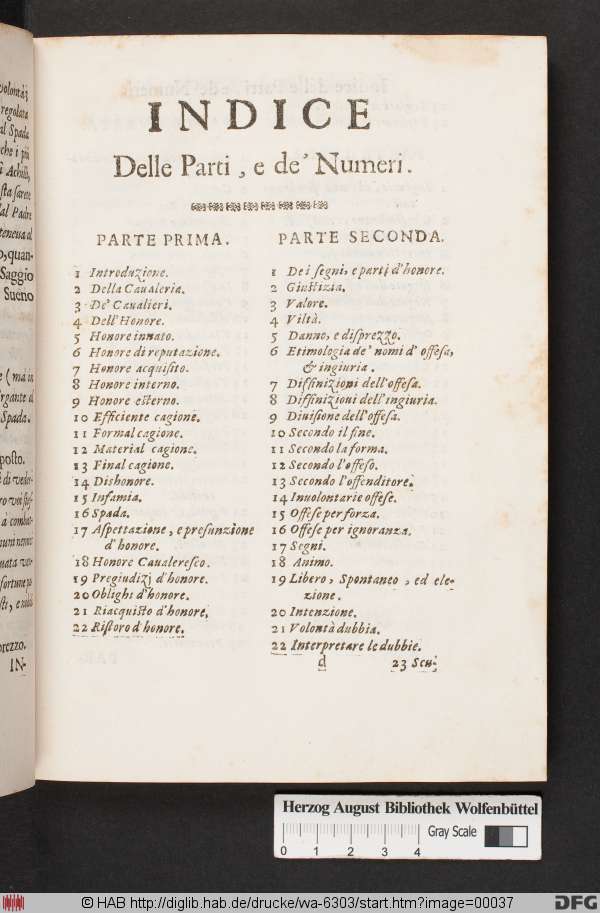 volontà;
regolata
al Spada
che i più
Achille,
sta sarete
dal Padre
tenenza al
o, quan-
Saggio
Sueno
e (ma in
rgante il
Spada.
posto.
è di veder-
a combat-
uata ver-
fortune pa
sti, e nobili
prezzo.
IN-
INDICE
Delle Parti, e de' Numeri.
PARTE PRIMA.
1 Introduzione.
2 Della Caualeria.
3 De' Caualieri.
4 Dell' Honore.
5 Honore innato.
6 Honore di reputazione.
7 Honore acquisito.
8 Honore interno.
9 Honore esterno.
10 Efficiente cagione.
11 Formal cagione.
12 Material cagione.
13 Final cagione.
14 Dishonore.
15 Infamia.
16 Spada.
17 Aspettazione, e presunzione
d'honore.
18 Honore Caualeresco.
19 Pregiudizj d'honore.
20 Oblighi d'honore.
21 Riacquisto d'honore.
22 Ristoro d'honore.
PARTE SECONDA.
1 De i segni, e parti d'honore.
2 Giustizia.
3 Valore.
4 Viltà.
5 Danno, e disprezzo.
6 Etimologia de' nomi d' offesa,
& ingiuria.
7 Diffinizioni dell'offesa.
8 Diffinizioni dell'ingiuria.
9 Diuisione dell'offesa.
10 Secondo il fine.
11 Secondo la forma.
12 Secondo l'offeso.
13 Secondo l'offenditore.
14 Inuolontarie offese.
15 Offese per forza.
16 Offese per ignoranza.
17 Segni.
18 Animo.
19 Libero, Spontaneo, ed ele-
zione.
20 Intenzione.
21 Volontà dubbia.
22 Interpretare le dubbie.
d 23 Scu-
Herzog August Bibliothek Wolfenbüttel
Gray Scale
0 1 2 3 4
© HAB http://diglib.hab.de/drucke/wa-6303/start.htm?image=00037
DFG